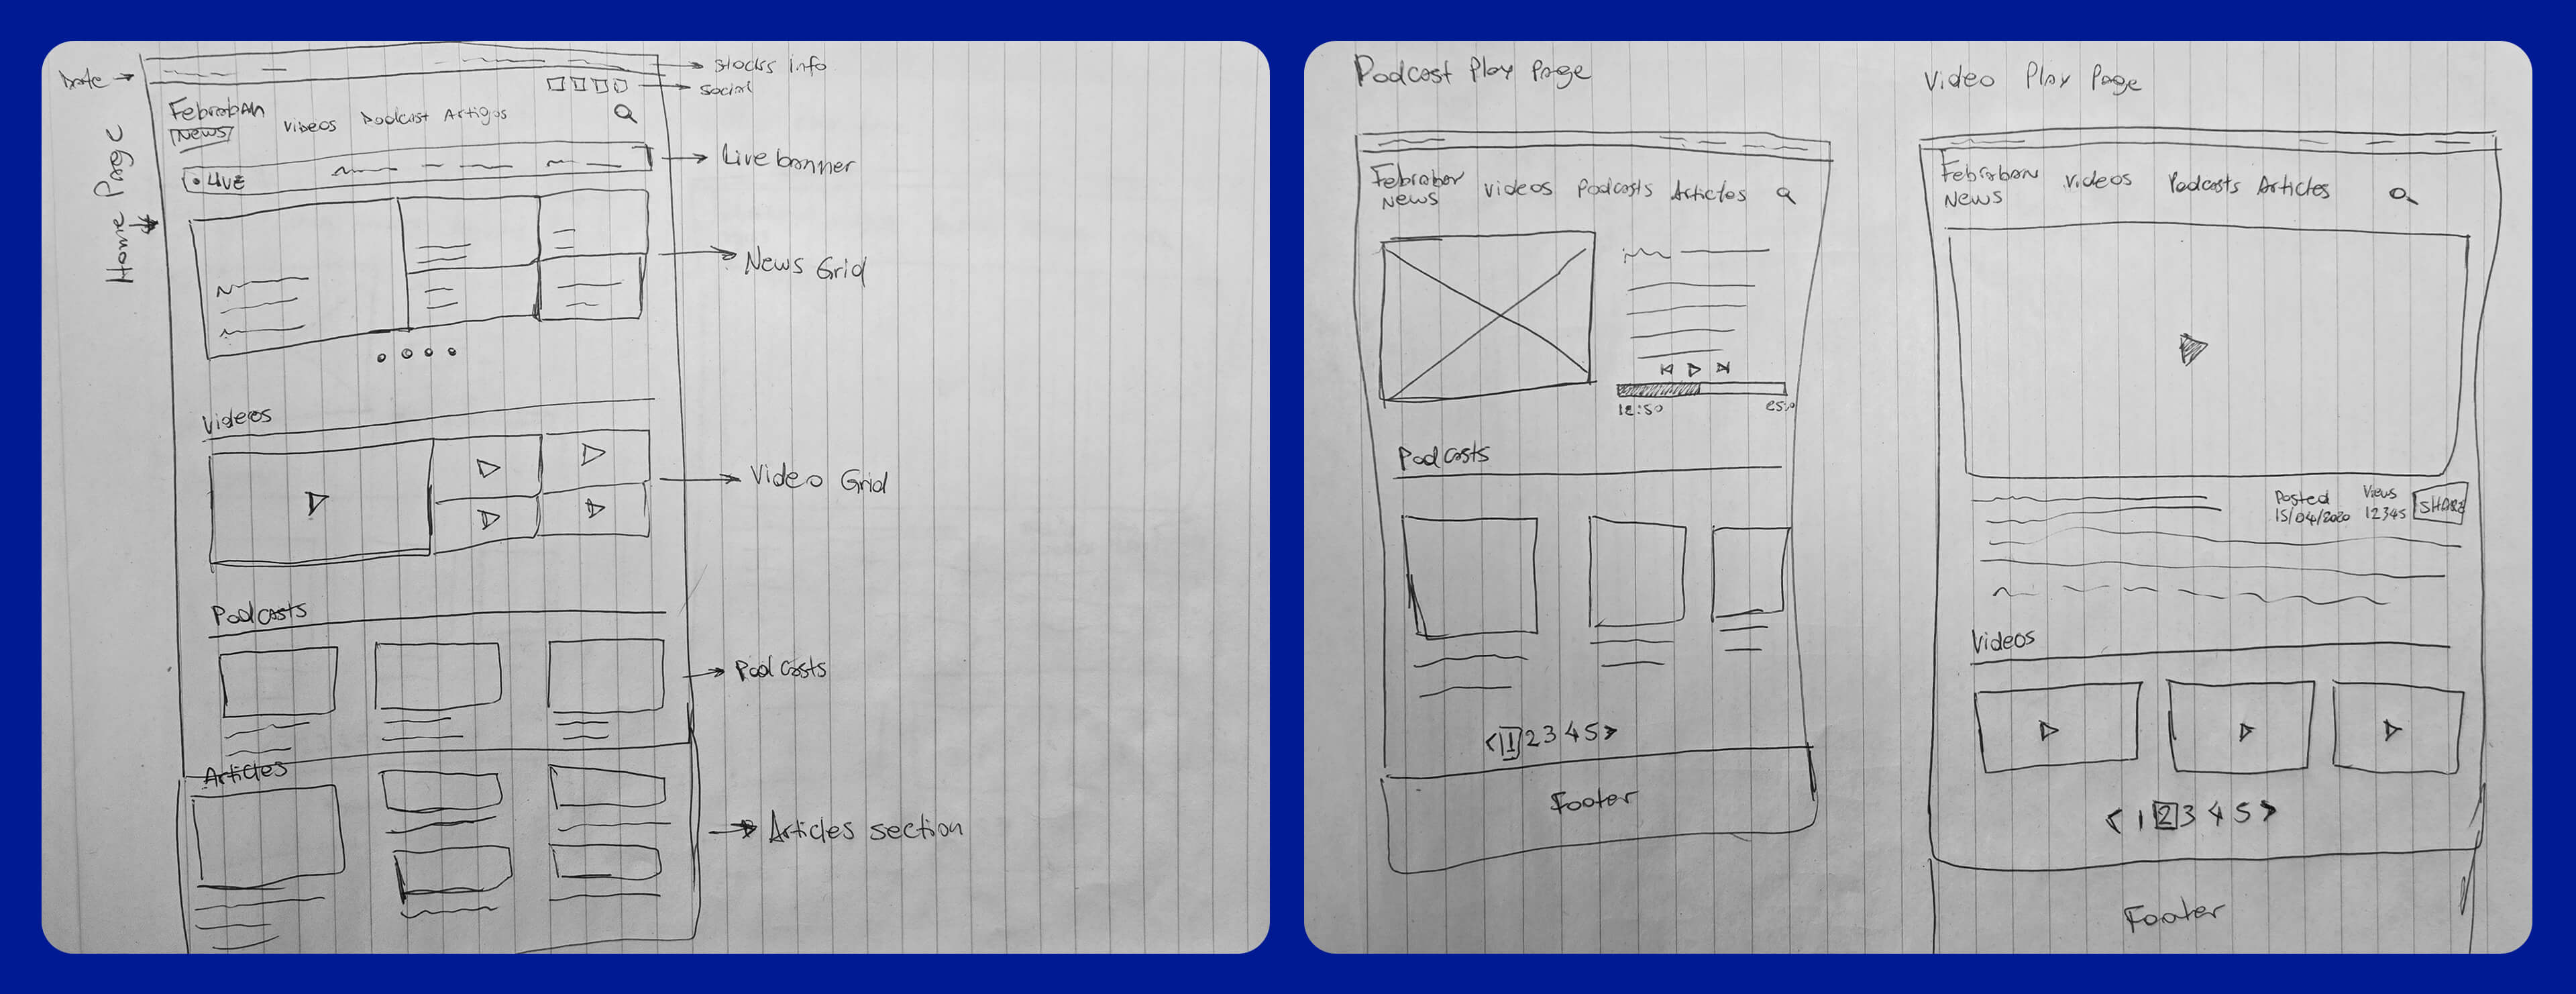 Date
stocks info
social
Home Page
Febraban
News
Videos
Podcast
Artigos
LIVE
Live banner
News Grid
Videos
Video Grid
Podcasts
Podcasts
Articles
Articles section
Podcast Play Page
Febraban
News
Videos
Podcasts
Articles
12:50
Podcasts
< 1 2 3 4 5 >
Footer
Video Play Page
Febraban
News
Videos
Podcasts
Articles
Posted
15/04/2020
Views
12345
SHARE
Videos
< 1 2 3 4 5 >
Footer